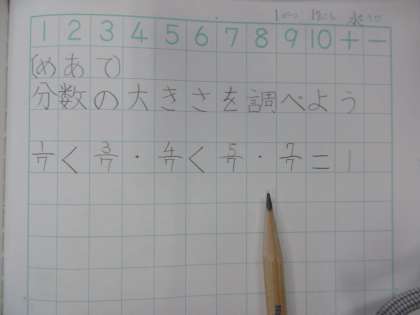 1 2 3 4 5 6 7 8 9 10 + −
(めあて)
分数の大きさを調べよう
1/7 < 3/7 · 4/7 < 5/7 · 7/7 = 1